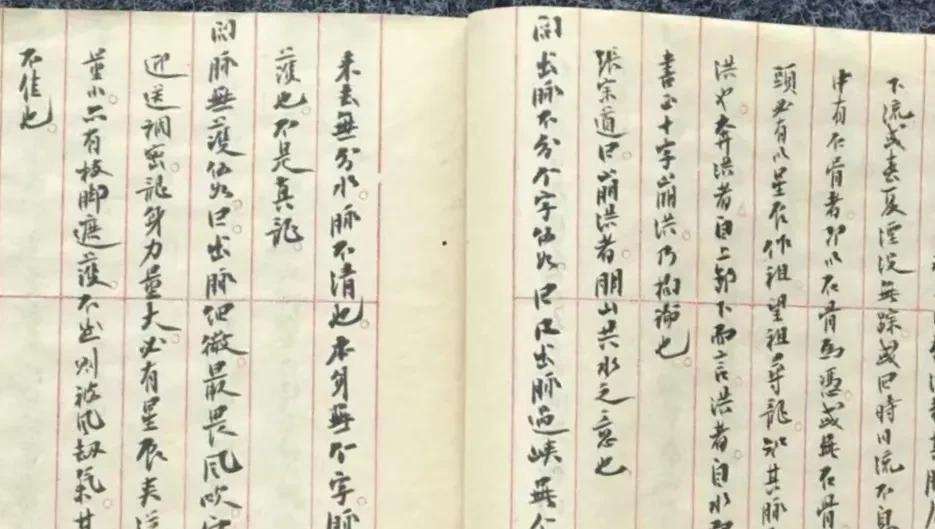 下流或春夏湮没無踪或曰時日流不息
中有石骨者即以石骨為憑或無石骨
頭必有以星辰作祖望祖尋龍認其脈
洪也奔洪者自上郭下而言洪者自水
書云十字崩洪乃搊論也
張宗道曰崩洪者朋山共水之意也
問出脈不分个字伍如曰凡出脈過峡無个
来去無分水脈不清也本身無个字脈
護也不是真龍
問脈無護伍如曰出脈細微最畏風吹
迎送調密龍身力量大必有星辰夹送
量小亦有枝脚遮護不然則被風劫氣其
不佳也